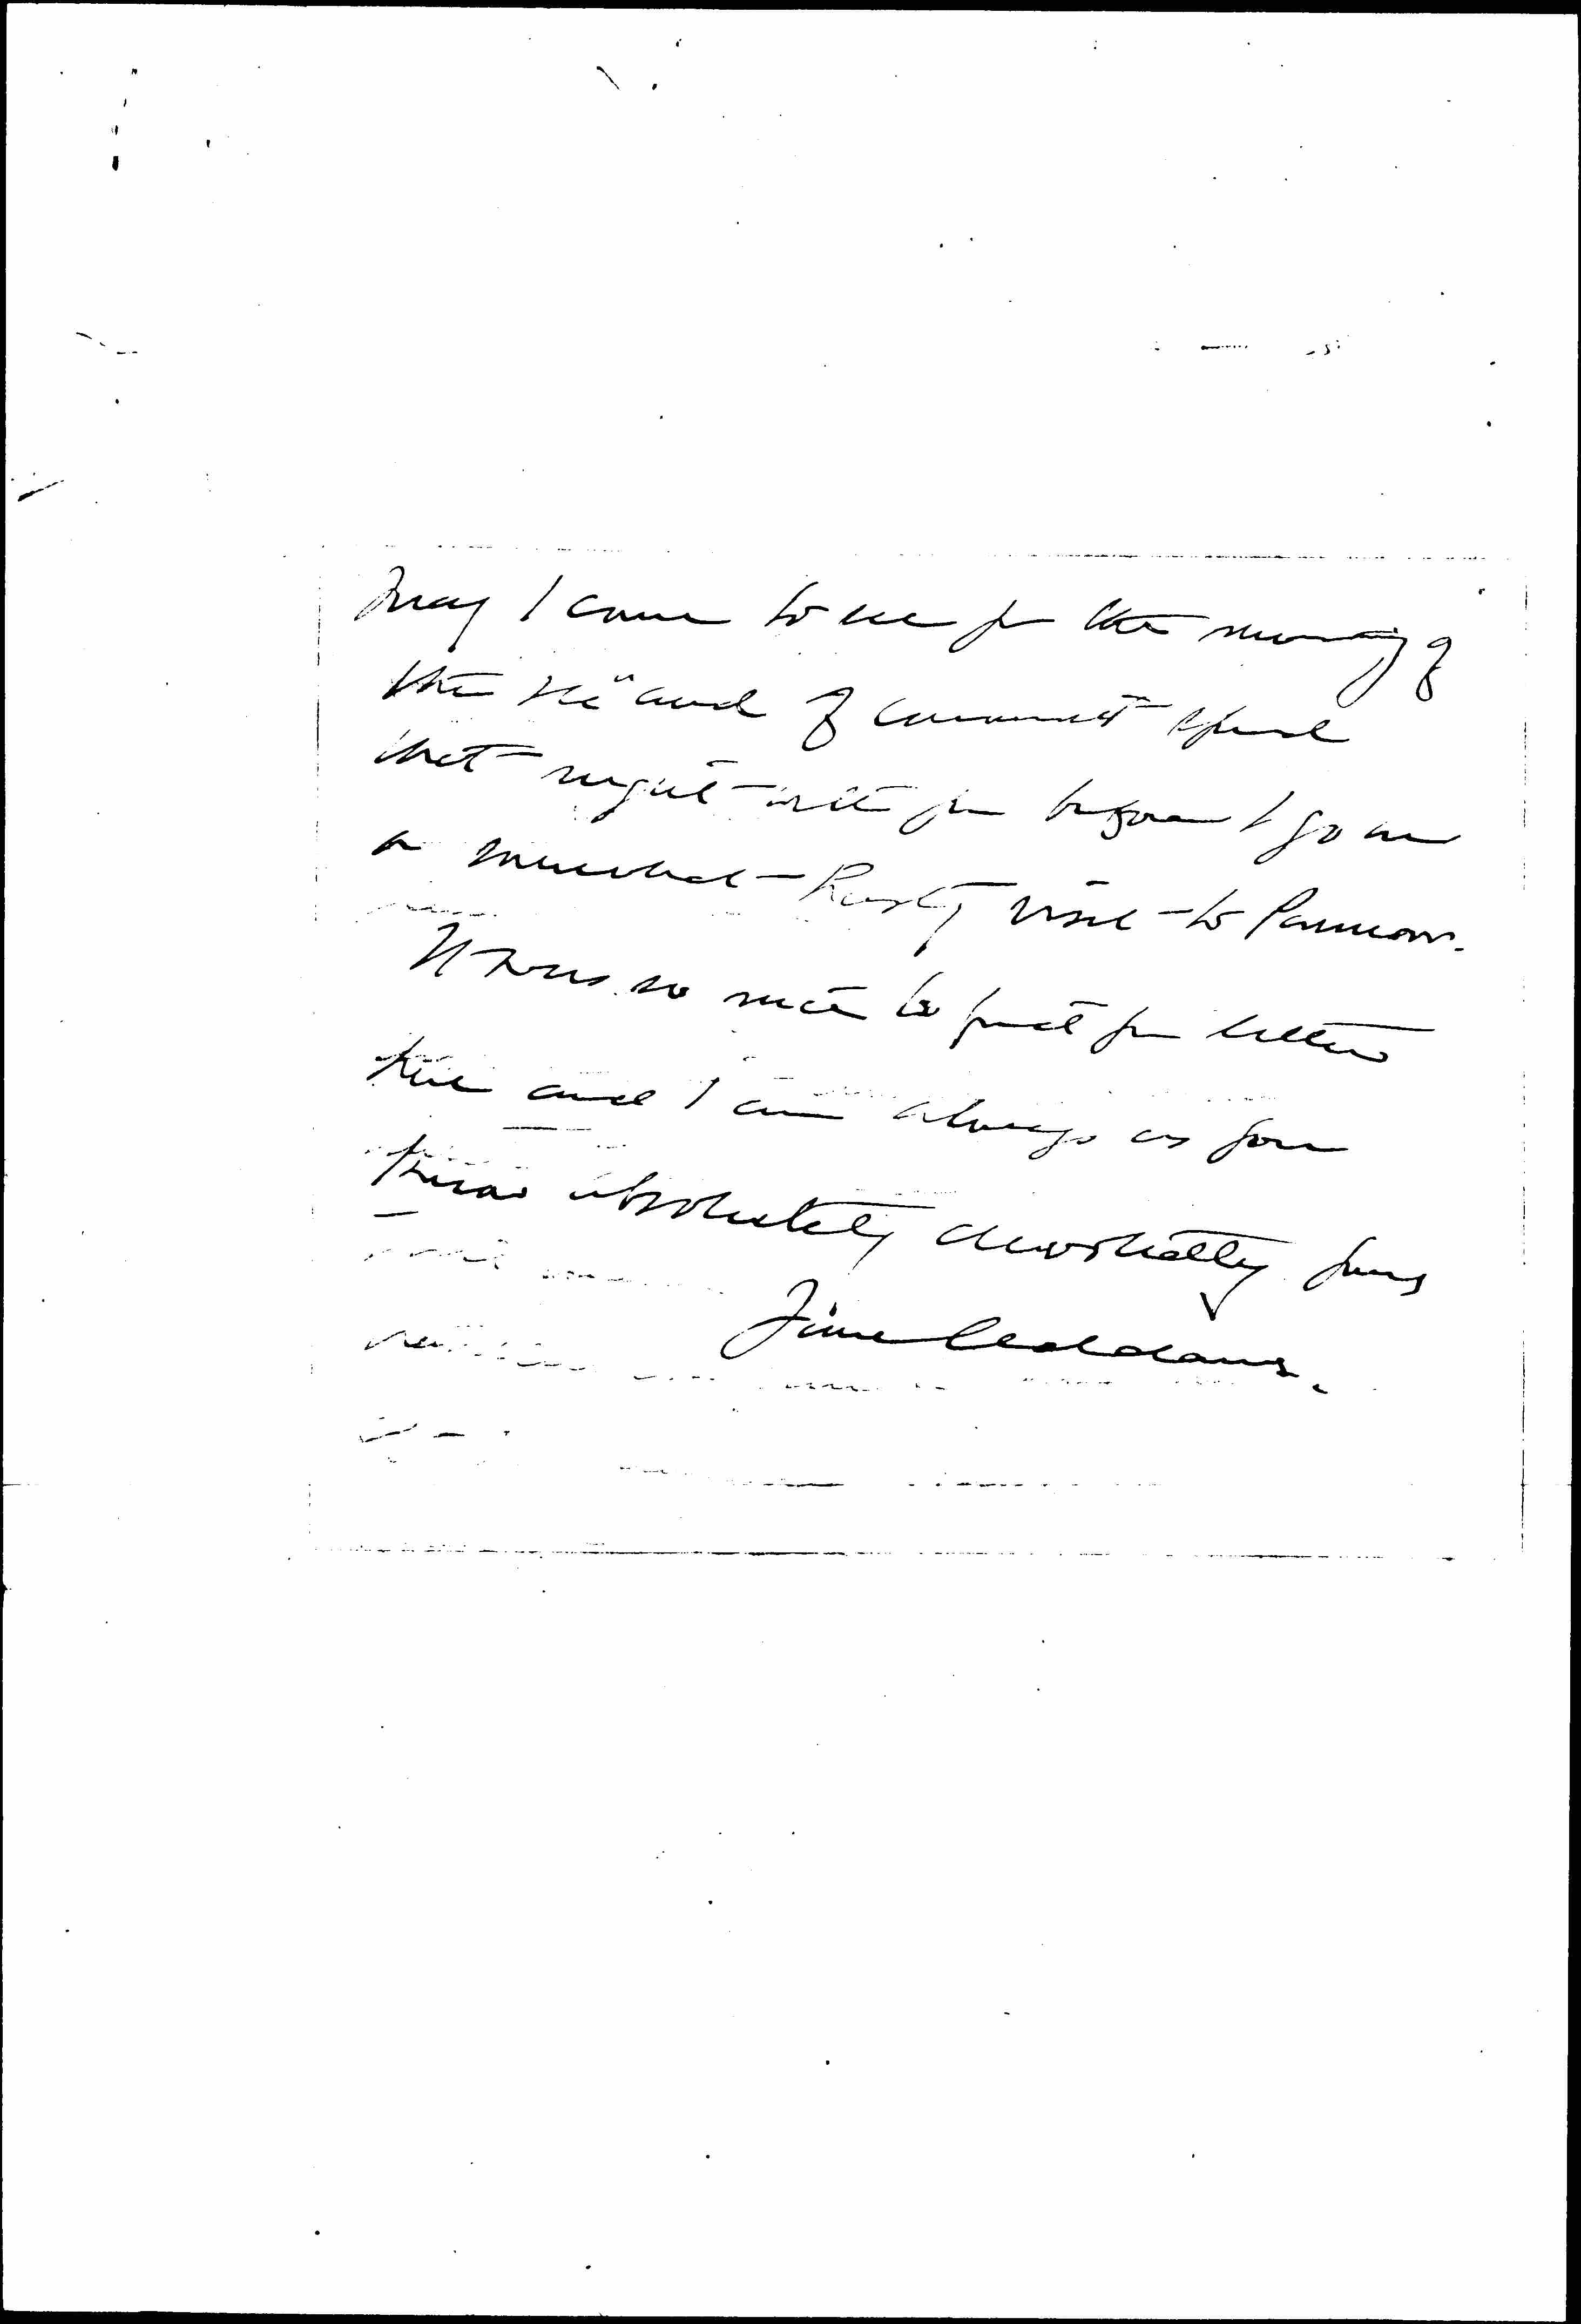 May I come to see you the morning of
the and if convenient spend
that night with you before I go on
a somewhat hasty visit to
It was so nice to find your letter
here and I am always as you
know absolutely devotedly yours
Jane Addams.